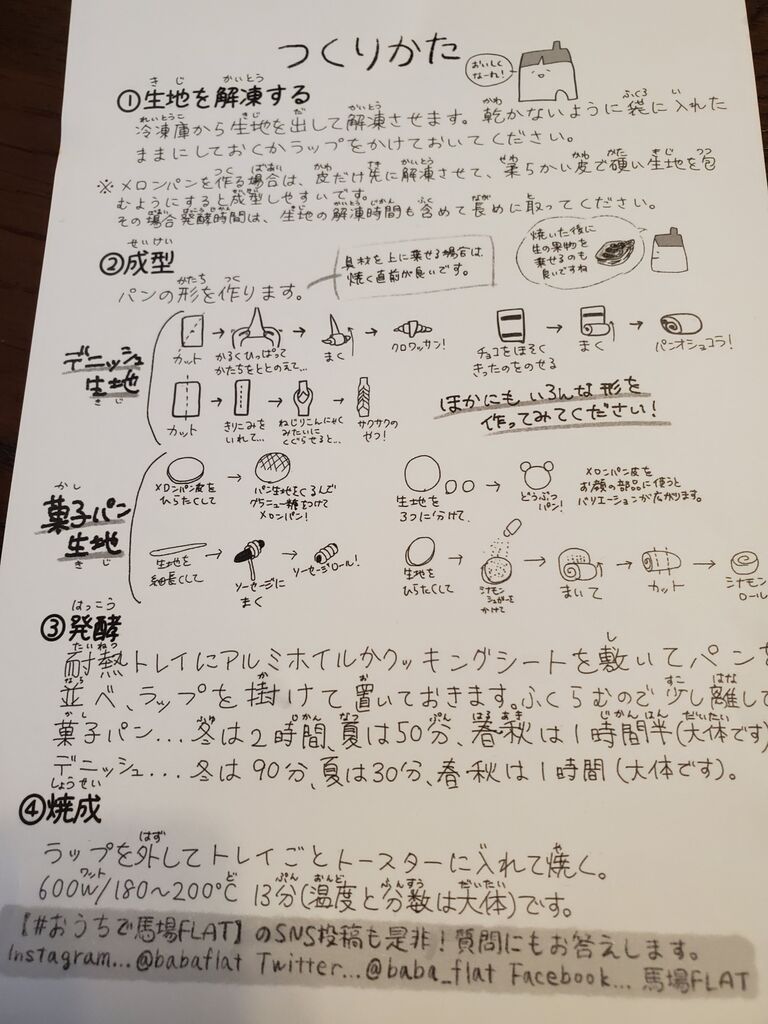 つくりかた
おいしく
なーれ!
①生地を解凍する
冷凍庫から生地を出して解凍させます。乾かないように袋に入れた
ままにしておくかラップをかけておいてください。
※メロンパンを作る場合は、皮だけ先に解凍させて、柔らかい皮で硬い生地を包
むようにすると成型しやすいです。
その場合発酵時間は、生地の解凍時間も含めて長めに取ってください。
②成型
パンの形を作ります。
具材を上に乗せる場合は、
焼く直前が良いです。
焼いた後に
生の果物を
乗せるのも
良いですね
デニッシュ
生地
カット
かるくひっぱって
かたちをととのえて…
まく
クロワッサン!
チョコをほそく
きったのをのせる
まく
パンオショコラ!
カット
きりこみを
いれて…
ねじりこんにゃく
みたいに
くぐらせると…
サクサクの
ゼつ!
ほかにもいろんな形を
作ってみてください!
菓子パン
生地
メロンパン皮を
ひらたくして
パン生地をくるんで
グラニュー糖をつけて
メロンパン!
生地を
3つに分けて
どうぶつ
パン!
メロンパン皮を
お顔の部品に使うと
バリエーションが広がります。
生地を
細長くして
ソーセージに
まく
ソーセージロール!
生地を
ひらたくして
シナモン
シュガーを
かけて
まいて
カット
シナモン
ロール
③発酵
耐熱トレイにアルミホイルかクッキングシートを敷いてパンを
並べ、ラップを掛けて置いておきます。ふくらむので少し離して
菓子パン…冬は2時間、夏は50分、春秋は1時間半(大体です)
デニッシュ…冬は90分、夏は30分、春秋は1時間(大体です)。
④焼成
ラップを外してトレイごとトースターに入れて焼く。
600W/180〜200℃ 13分(温度と分数は大体)です。
【#おうちで馬場FLAT】のSNS投稿も是非!質問にもお答えします。
Instagram…@babaflat Twitter…@baba_flat Facebook… 馬場FLAT